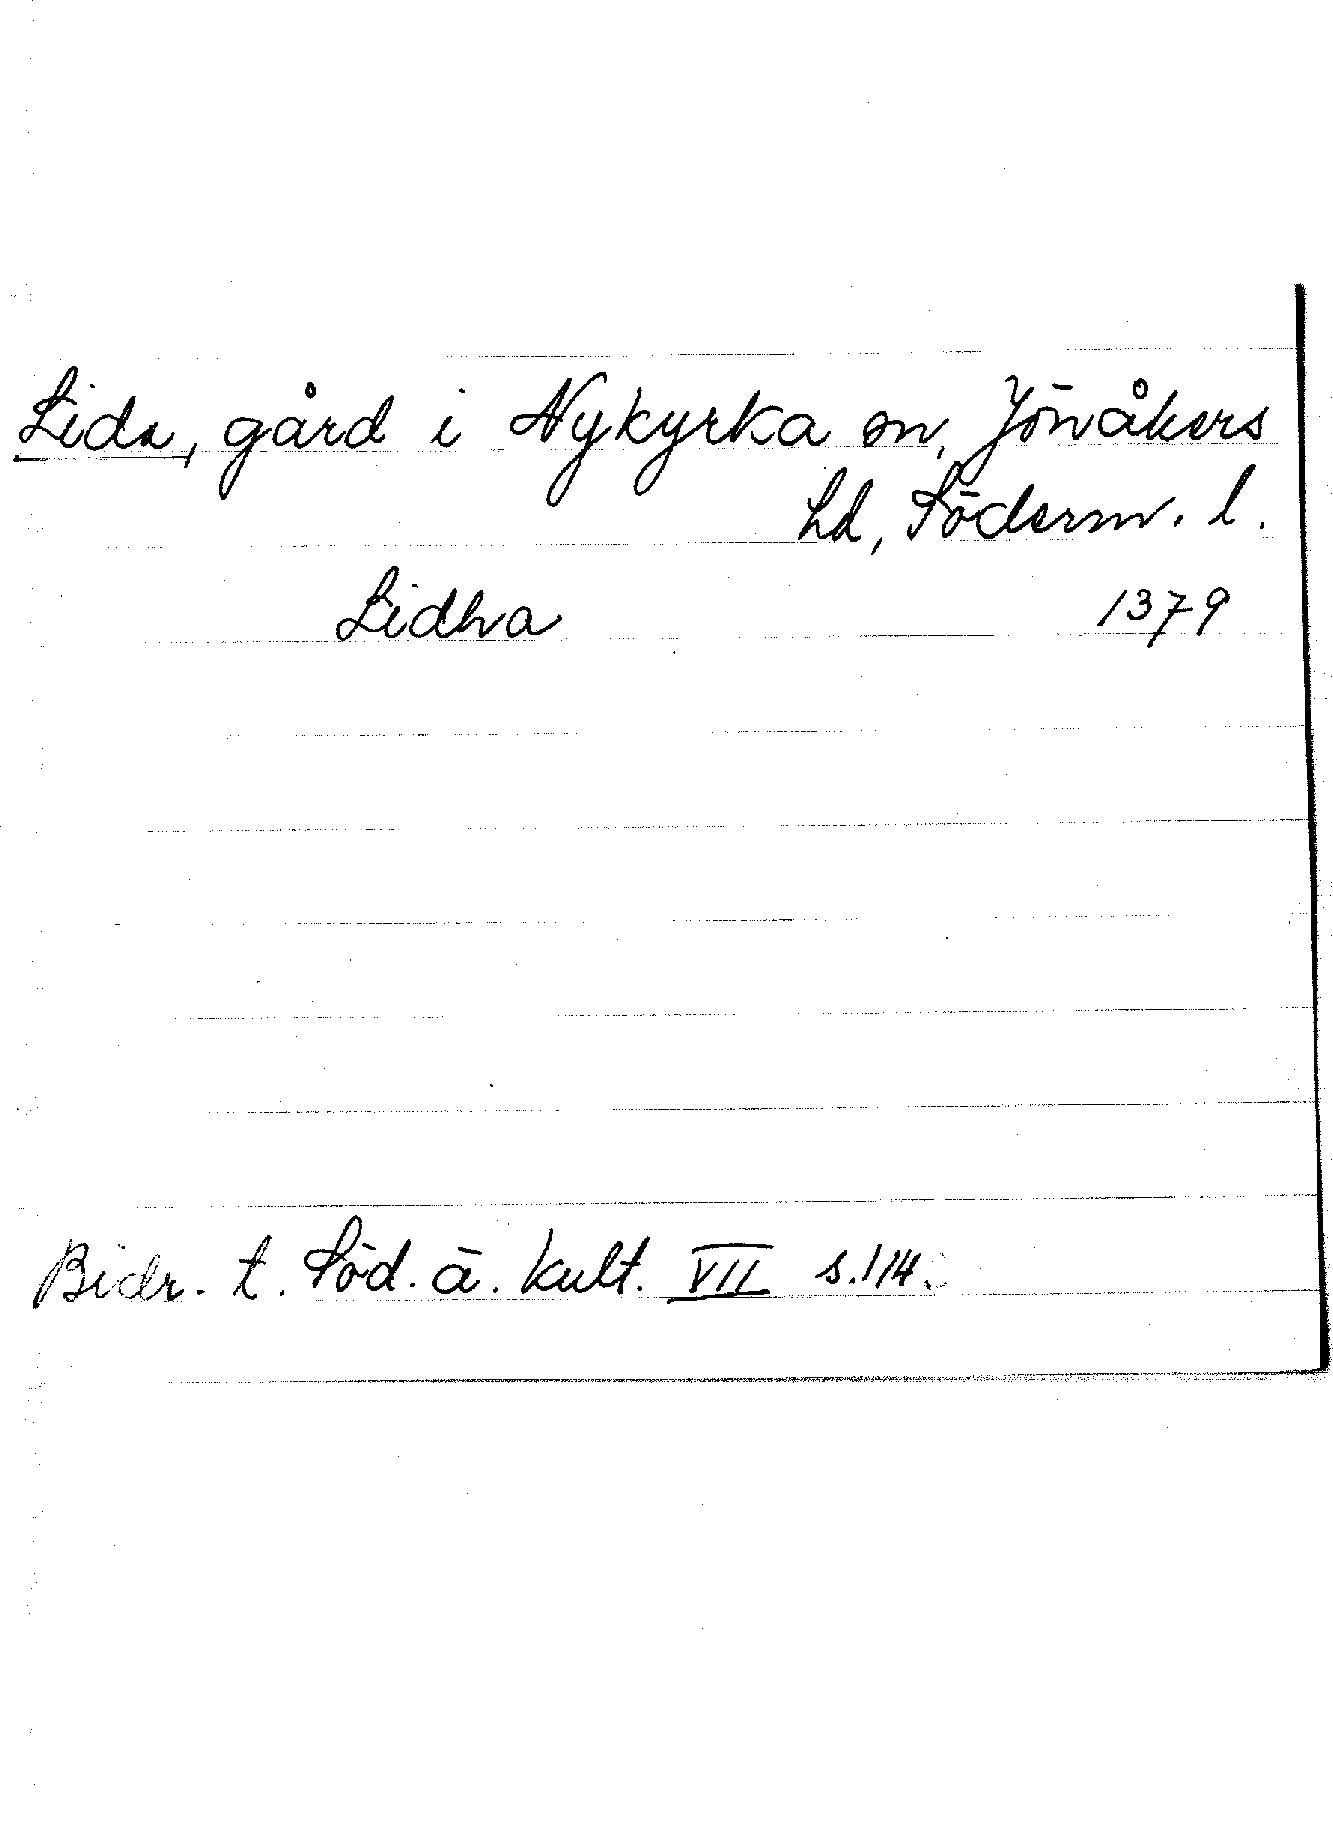 Lida, gård i Nykyrka sn, Jönåkers
hd, Söderm. l.
Lidha 1379
Bidr. t. Söd. ä. kult. VII s. 114.